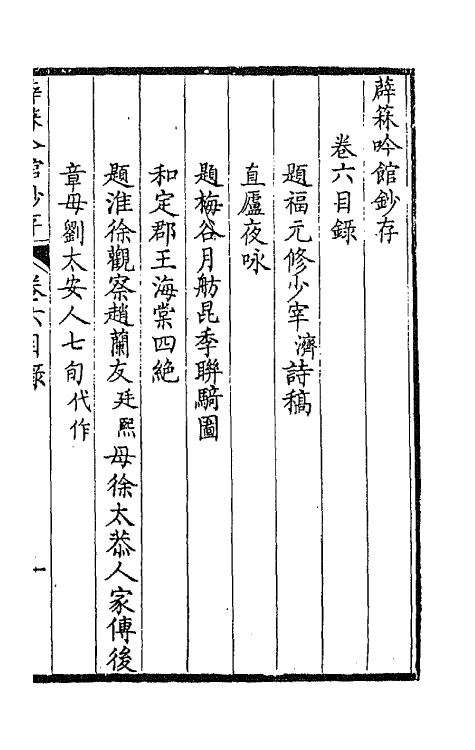 薜箖吟館鈔存
卷六目錄
題福元修少宰濟詩稿
直廬夜咏
題梅谷月舫昆季聯騎圖
和定郡王海棠四絶
題淮徐觀察趙蘭友廷熙母徐太恭人家傳後
章母劉太安人七旬代作
薜箖吟館鈔存 卷六目錄 一